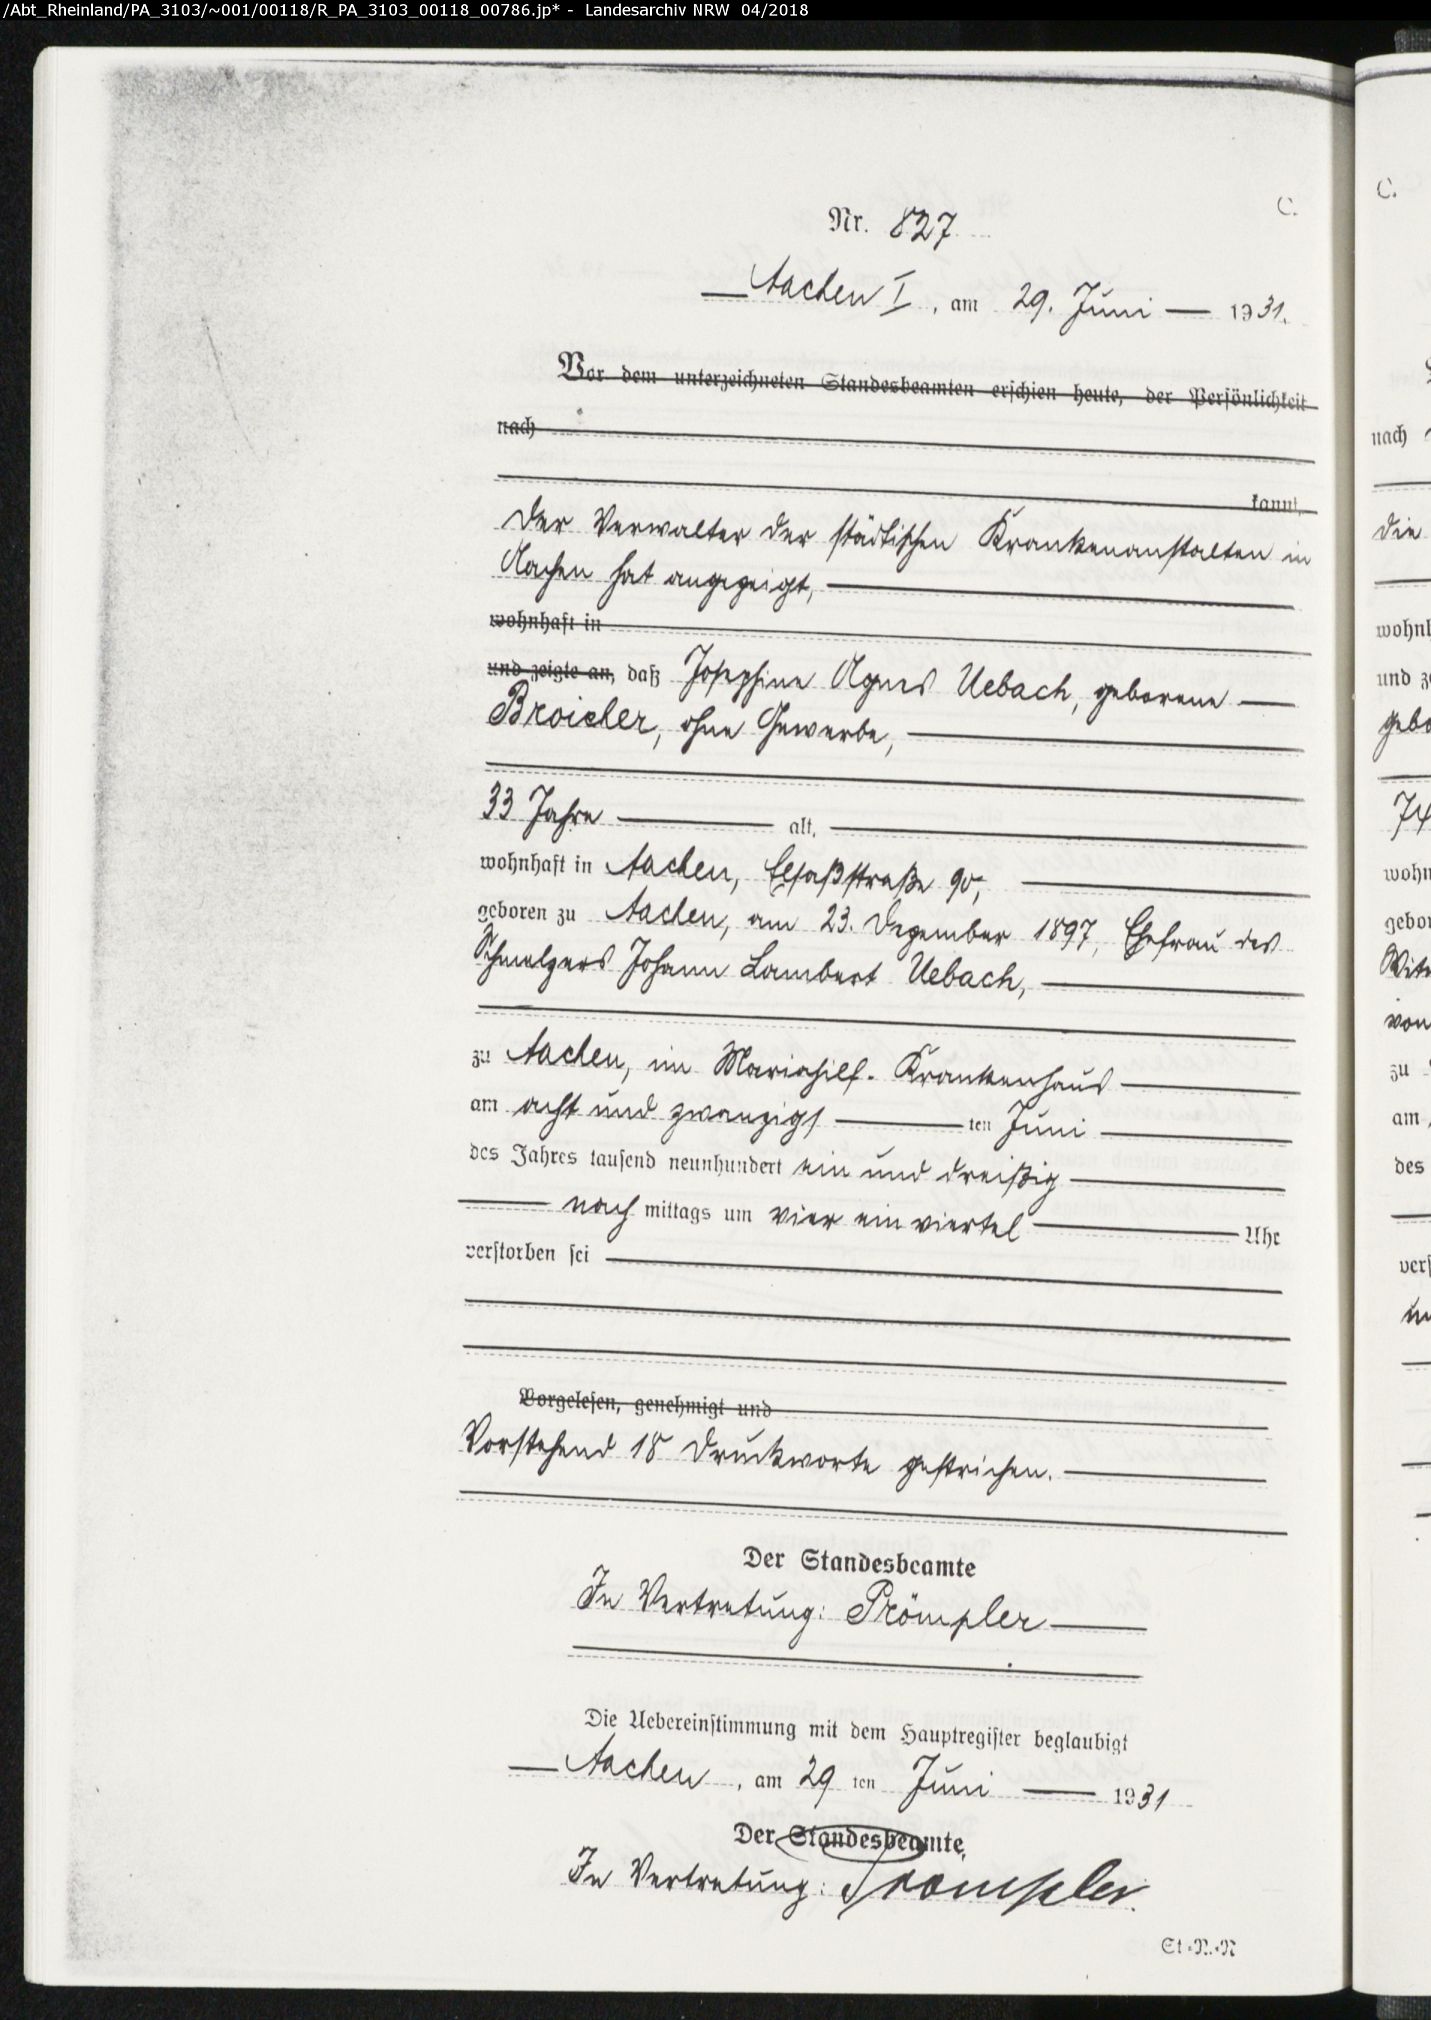 /Abt_Rheinland/PA_3103/~001/00118/R_PA_3103_00118_00786.jp* - Landesarchiv NRW 04/2018
C.
Nr. 827
Aachen I, am 29. Juni 1931.
Vor dem unterzeichneten Standesbeamten erschien heute, der Persönlichkeit
nach
kannt,
Der Verwalter der städtischen Krankenanstalten in
Aachen hat angezeigt,
wohnhaft in
und zeigte an, daß Josephine Agnes Uebach, geborene
Broicher, ohne Gewerbe,
33 Jahre alt,
wohnhaft in Aachen, Elsaßstraße 90,
geboren zu Aachen, am 23. Dezember 1897, Ehefrau des
Schmelzers Johann Lambert Uebach,
zu Aachen, im Mariahilf-Krankenhaus
am acht und zwanzigsten Juni
des Jahres tausend neunhundert ein und dreißig
nachmittags um vier ein viertel Uhr
verstorben sei
Vorgelesen, genehmigt und
Vorstehend 18 Druckworte gestrichen.
Der Standesbeamte
In Vertretung: Prömpler
Die Uebereinstimmung mit dem Hauptregister beglaubigt
Aachen, am 29ten Juni 1931
Der Standesbeamte,
In Vertretung: Prömpler.
St.-N.-N
C.
nach
die
und
74
zu
am
des